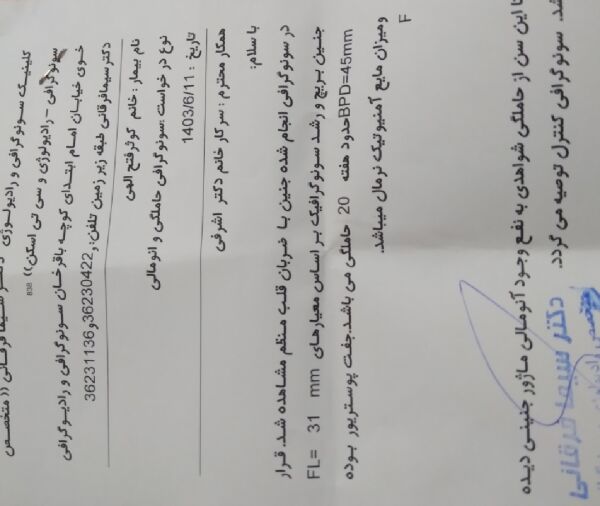 کلینیک سونوگرافی و رادیولوژی دکتر سیما فرقانی (( متخصص
سونوگرافی – رادیولوژی و سی تی اسکن)) 838
خوی خیابان امام ابتدای کوچه باقرخان سونوگرافی و رادیوگرافی
دکترسیمافرقانی طبقه زیر زمین تلفن: 36230422و36231136
نام بیمار : خانم کوثر فتح الهی
نوع در خواست :سونوگرافی حاملگی و انومالی
تاریخ : 1403/6/11
همکار محترم : سر کار خانم دکتر اشرفی
با سلام:
در سونوگرافی انجام شده جنین با ضربان قلب منظم مشاهده شد. قرار
جنین بریچ و رشد سونوگرافیک بر اساس معیارهای FL= 31 mm
BPD=45mm حدود هفته 20 حاملگی می باشد.جفت پوستریور بوده
ومیزان مایع آمنیوتیک نرمال میباشد.
F
تا این سن از حاملگی شواهدی به نفع وجود آنومالی ماژور جنینی دیده
شد. سونوگرافی کنترل توصیه می گردد.
دکتر سیما فرقانی